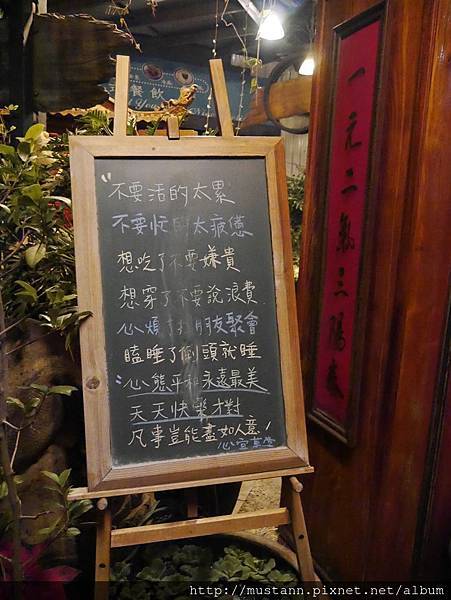 餐飲
一元二氣三陽泰
"不要活的太累
不要忙的太疲憊
想吃了不要嫌貴
想穿了不要說浪費
心煩了找朋友聚會
瞌睡了倒頭就睡
心態平和永遠最美
天天快樂才對
凡事豈能盡如人意!
http://mustann.pixnet.net/album